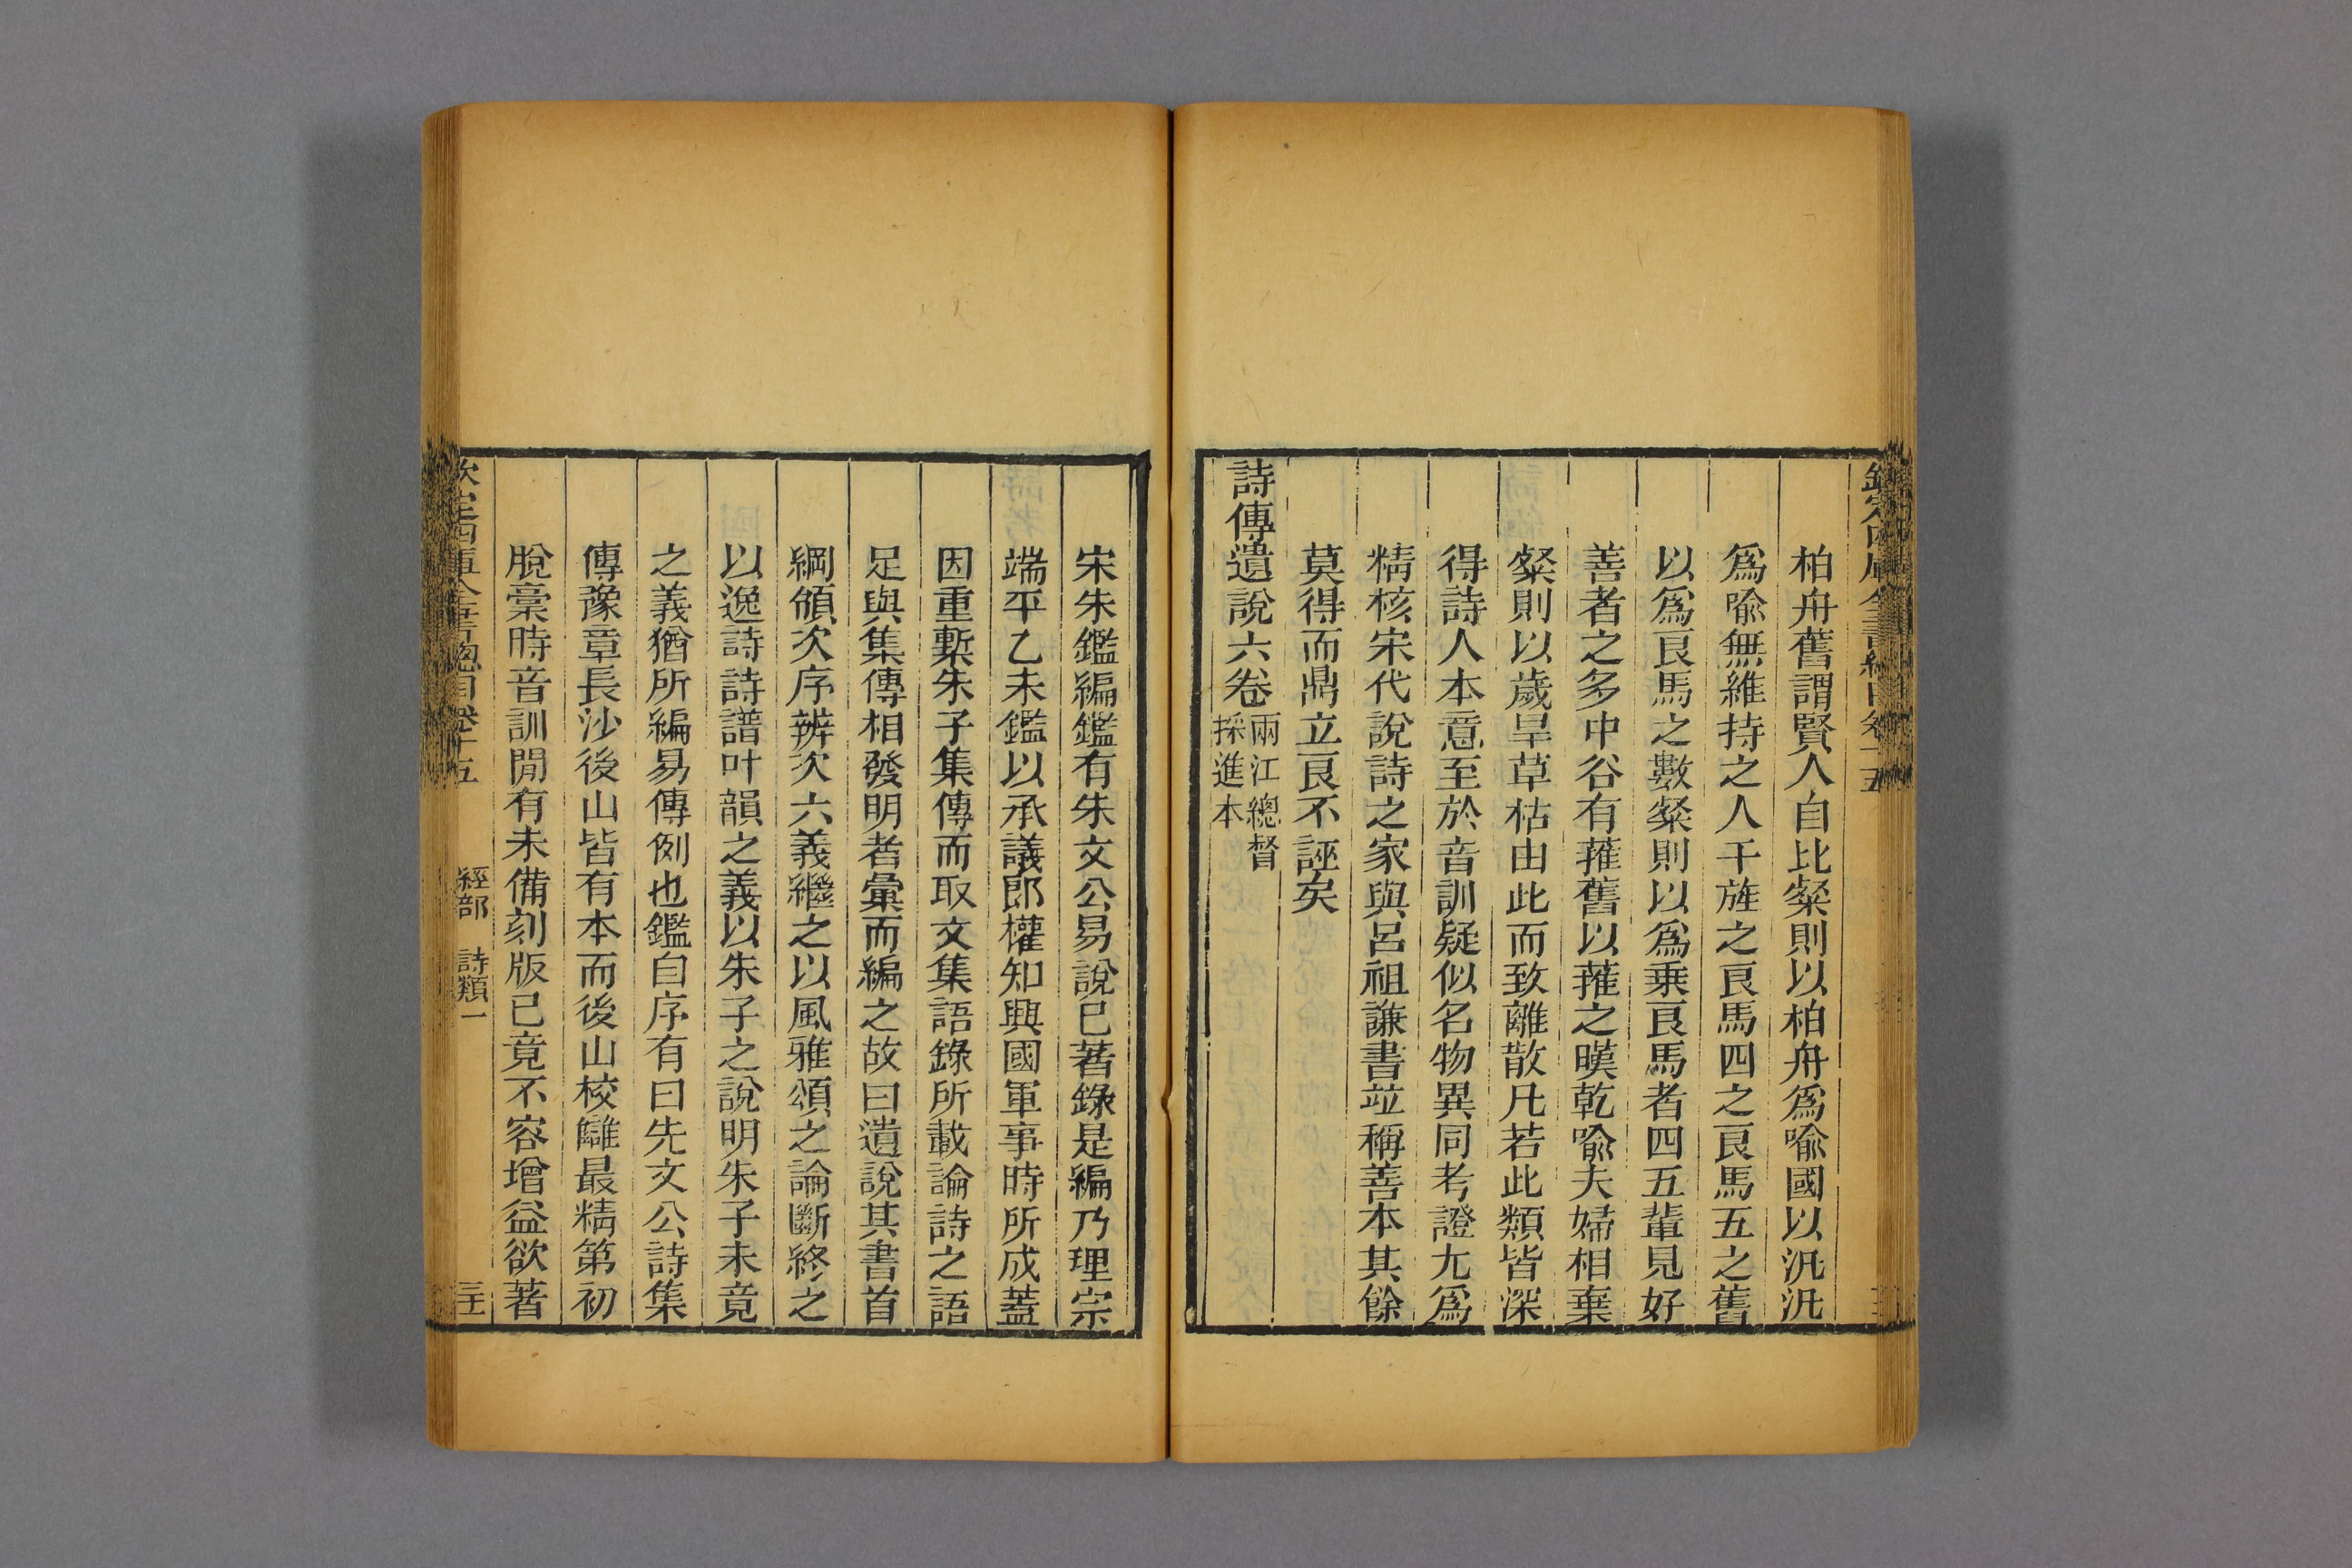 欽定四庫全書總目卷十五
柏舟舊謂賢人自比粲則以柏舟爲喩國以汎汎
爲喩無維持之人干旄之良馬四之良馬五之舊
以爲良馬之數粲則以爲乗良馬者四五輩見好
善者之多中谷有蓷舊以蓷之暵乾喩夫婦相棄
粲則以歲旱草枯由此而致離散凡若此類皆深
得詩人本意至於音訓疑似名物異同考證尤爲
精核宋代說詩之家與呂祖謙書竝稱善本其餘
莫得而鼎立良不誣矣
詩傳遺說六卷兩江總督採進本
宋朱鑑編鑑有朱文公易說已著錄是編乃理宗
端平乙未鑑以承議郎權知興國軍事時所成蓋
因重槧朱子集傳而取文集語錄所載論詩之語
足與集傳相發明者彙而編之故曰遺說其書首
綱領次序辨次六義繼之以風雅頌之論斷終之
以逸詩詩譜叶韻之義以朱子之說明朱子未竟
之義猶所編易傳例也鑑自序有曰先文公詩集
傳豫章長沙後山皆有本而後山校讎最精第初
脫稾時音訓閒有未備刻版已竟不容增益欲著
欽定四庫全書總目卷十五 經部 詩類一